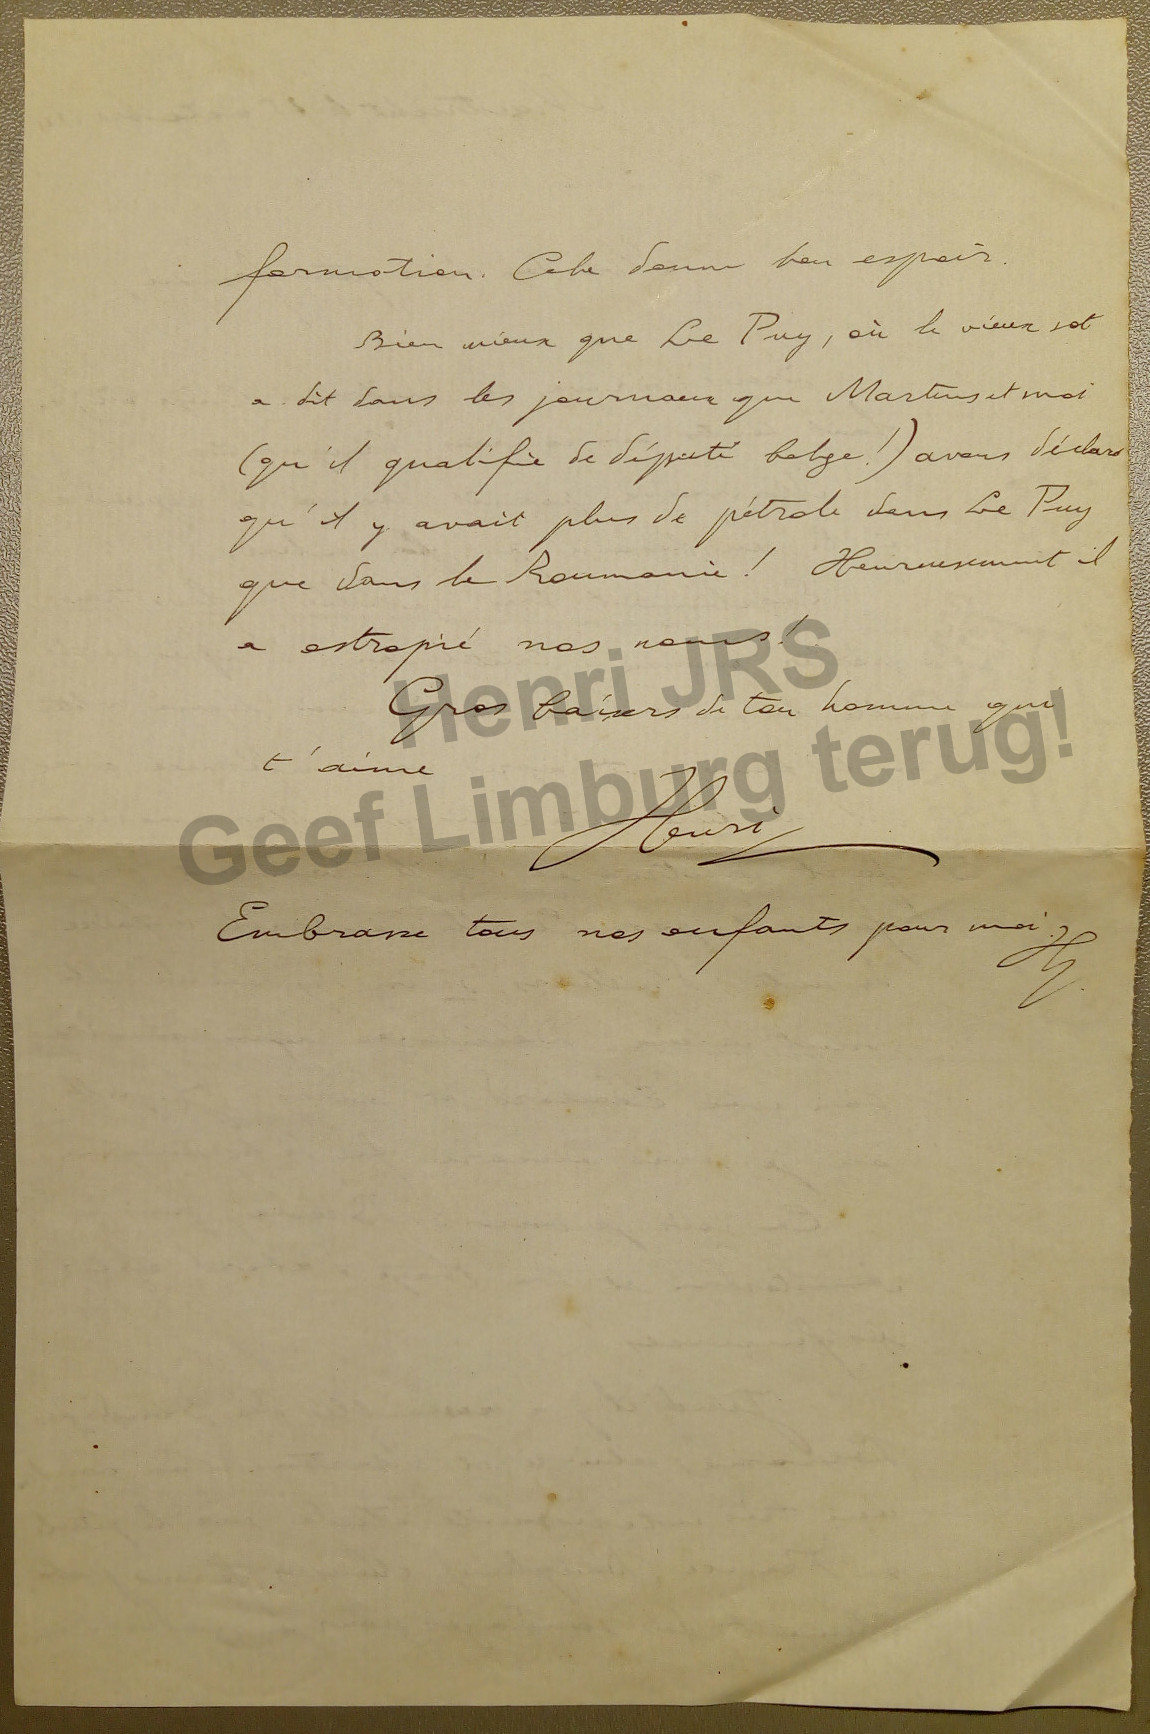 formation. Cela donne bon espoir.
Bien mieux que Le Puy, où le vieux sot
a dit dans les journaux que Martens et moi
(qu'il qualifie de député belge!) avons déclaré
qu'il y avait plus de pétrole dans Le Puy
que dans la Roumanie! Heureusement il
a estropié nos noms!
Gros baisers de ton homme qui
t'aime
Henri
Embrasse tous nos enfants pour moi.
H.
Henri JRS
Geef Limburg terug!